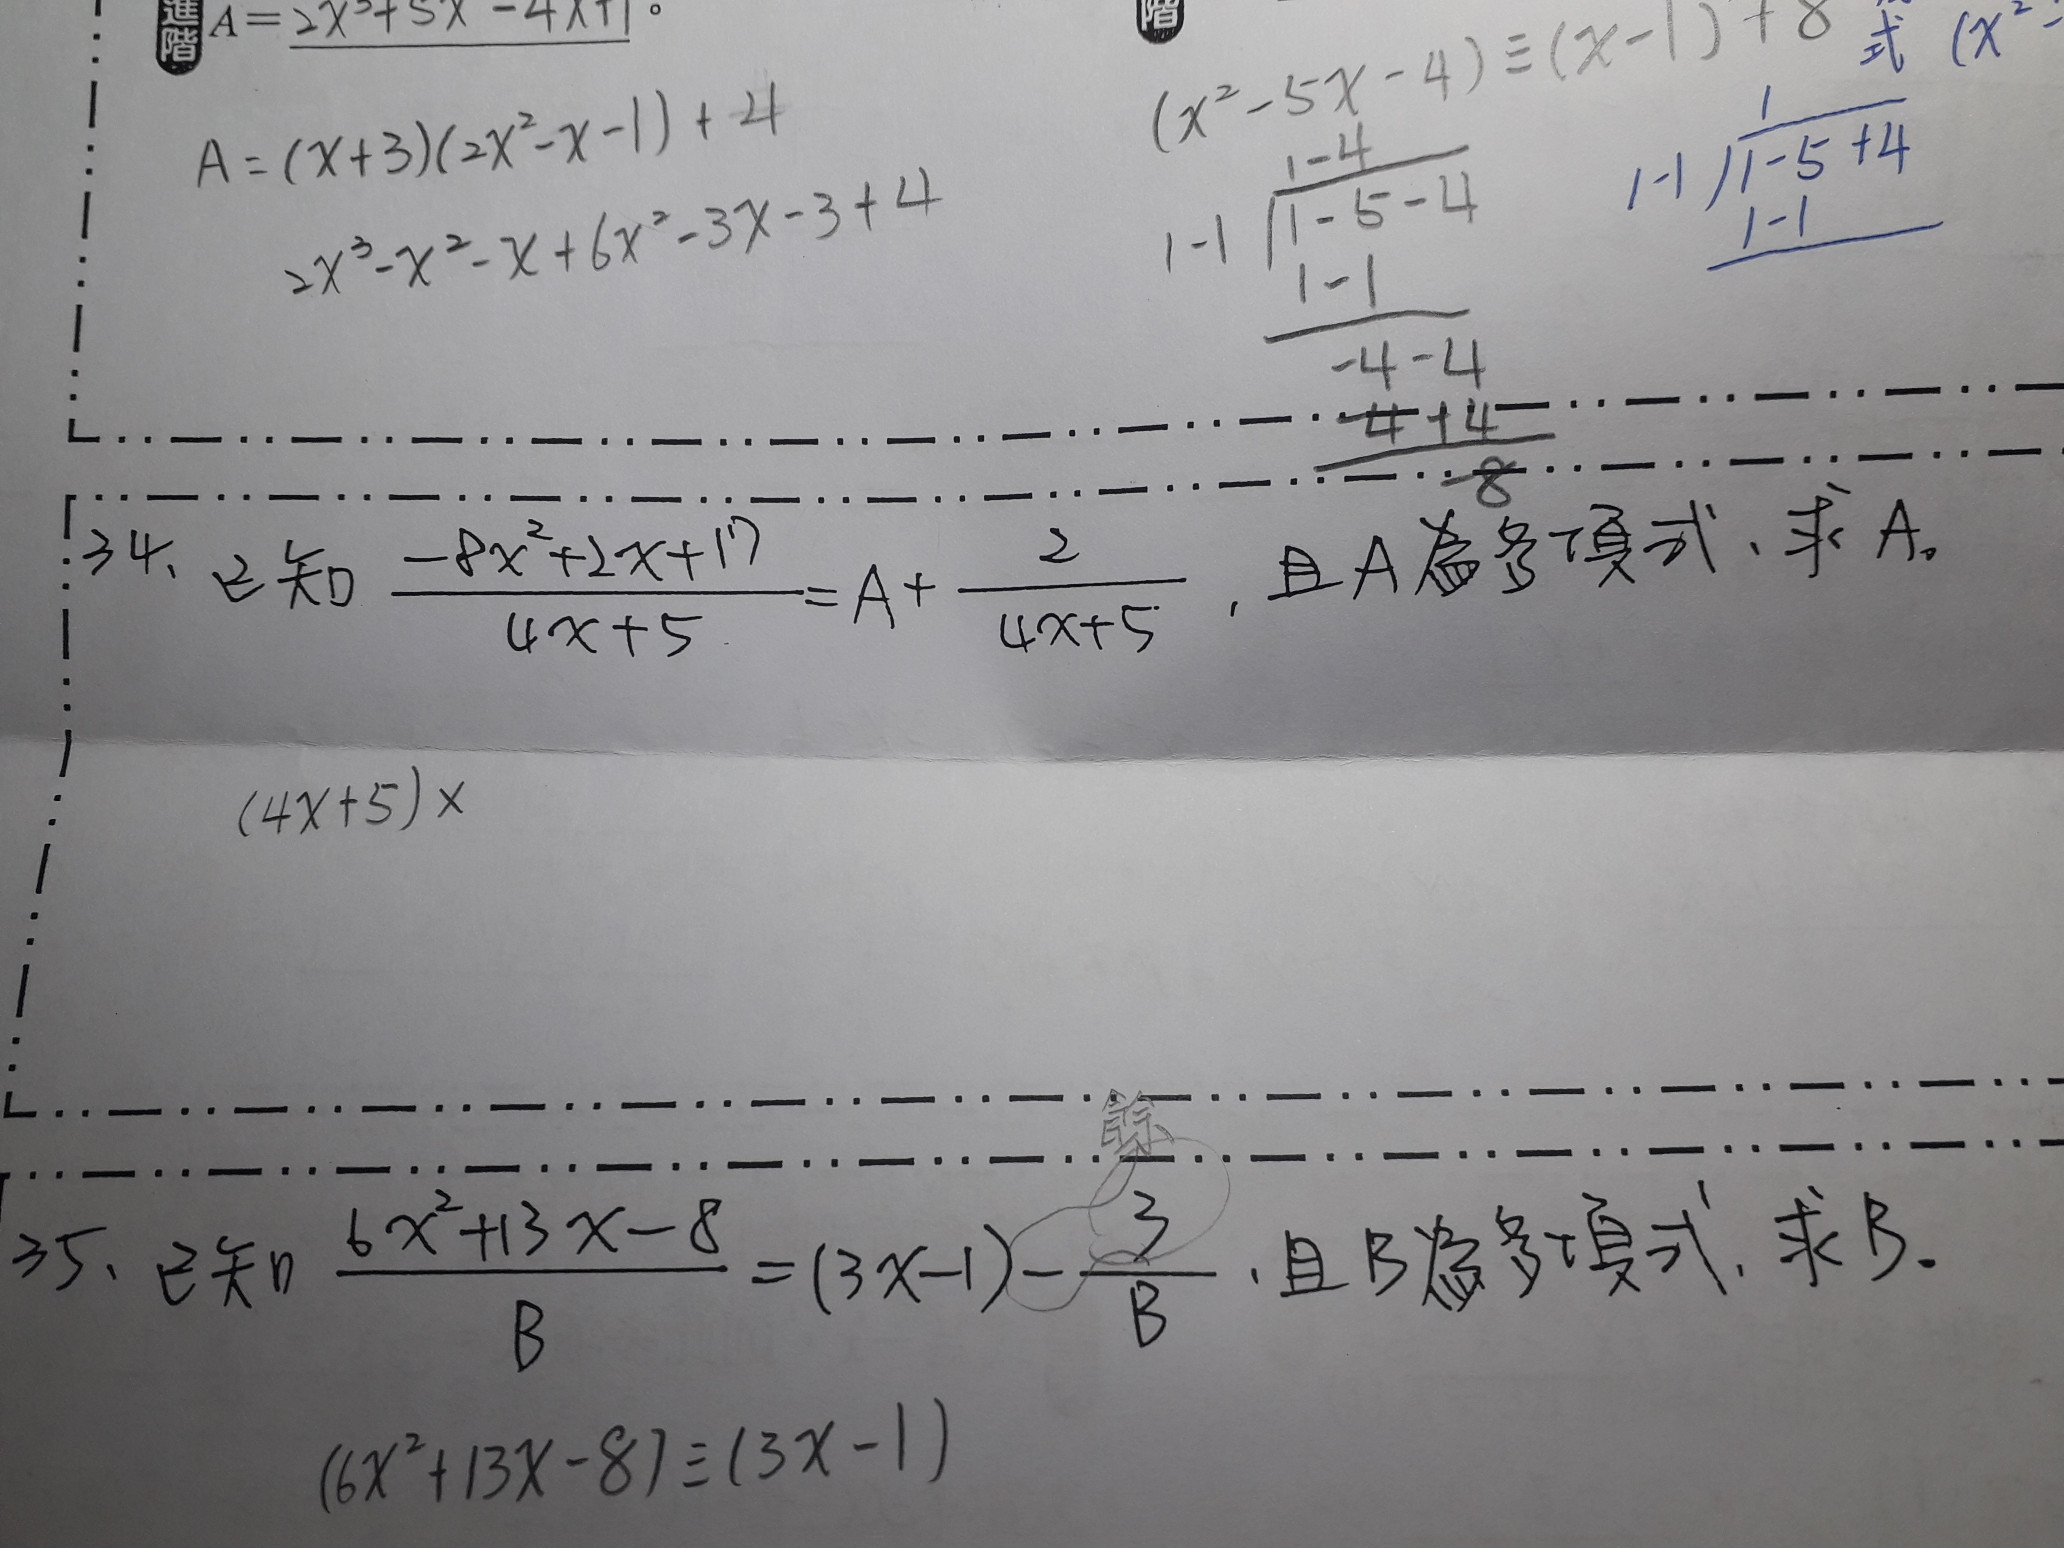 進階 A=2x³+5x²-4x+1。
A=(x+3)(2x²-x-1)+4
2x³-x²-x+6x²-3x-3+4
階
(x²-5x-4)≡(x-1)+8
1-4
1-1 1-5-4
1-1
-4-4
-4+4
-8
式 (x²-
1
1-1 1-5+4
1-1
34、已知 (-8x²+2x+17)/(4x+5)=A+2/(4x+5),且A為多項式、求A。
(4x+5)×
餘
35、已知 (6x²+13x-8)/B=(3x-1)-3/B、且B為多項式、求B。
(6x²+13x-8)≡(3x-1)